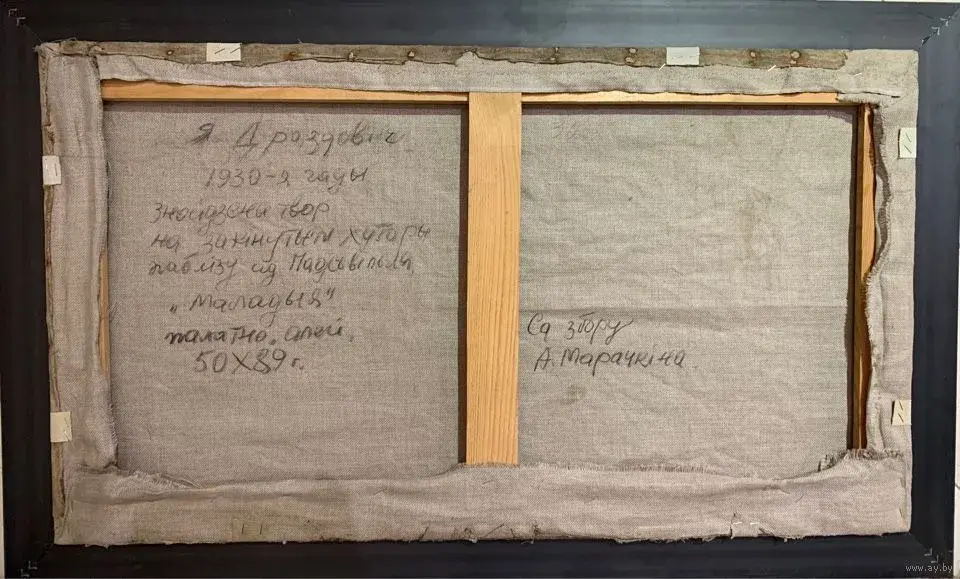 Я Драздовіч
1930-я гады
Знойдзены твор
на закінутым хутары
паблізу ад Падсвілля
„Маладыя"
палатно, алей.
50X89 г.
Са збору
А. Марачкіна
www.ay.by